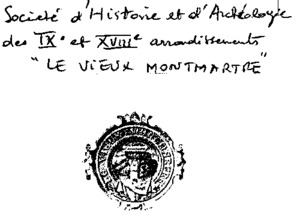 Société d'Histoire et d'Archéologie
des IXe et XVIIIe arrondissements
"LE VIEUX MONTMARTRE"